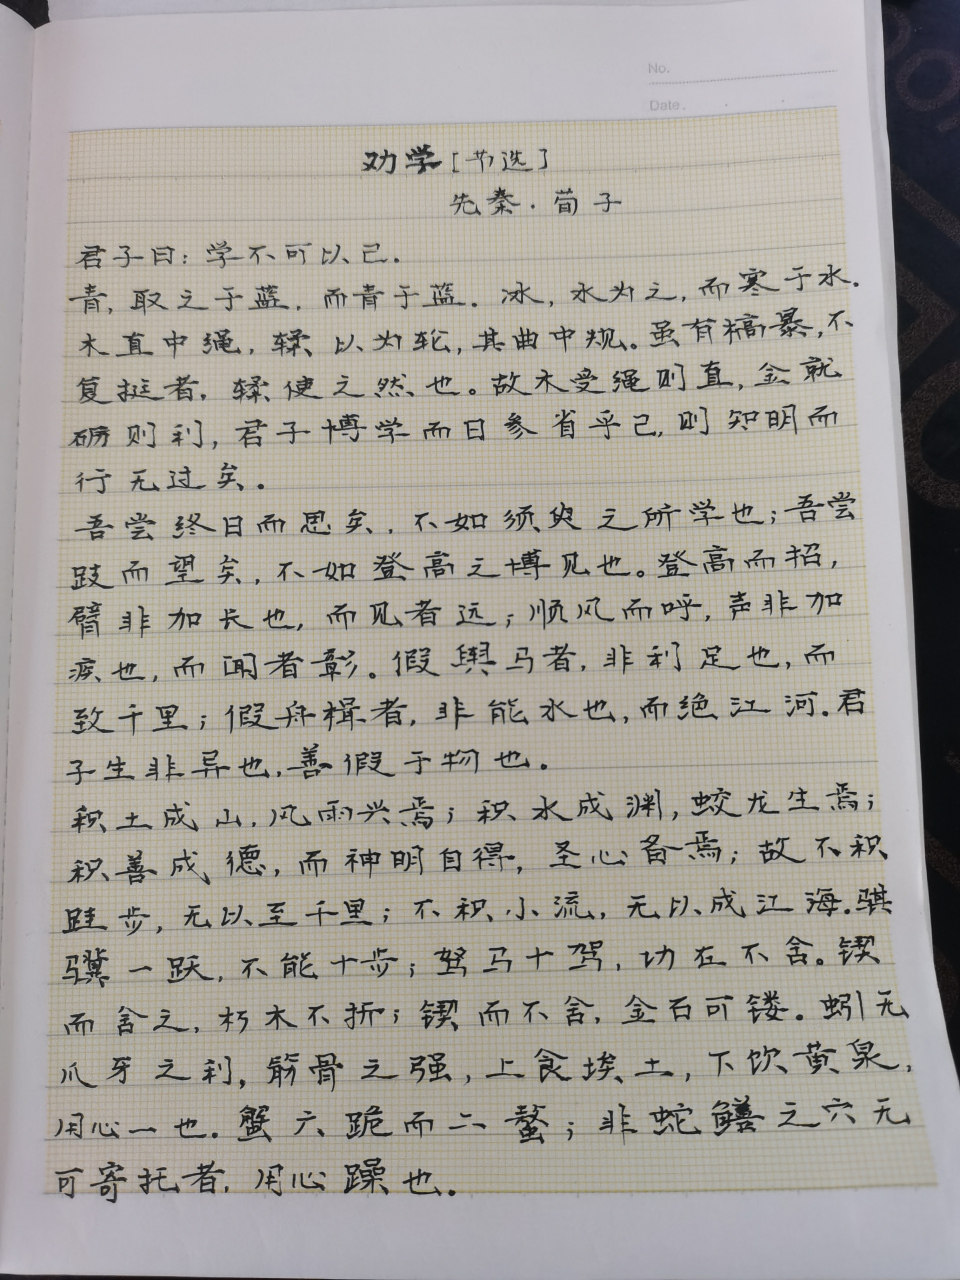 No.
Date.
劝学[节选]
先秦·荀子
君子曰:学不可以已.
青,取之于蓝,而青于蓝.冰,水为之,而寒于水.
木直中绳,輮以为轮,其曲中规。虽有槁暴,不
复挺者,輮使之然也。故木受绳则直,金就
砺则利,君子博学而日参省乎己,则知明而
行无过矣。
吾尝终日而思矣,不如须臾之所学也;吾尝
跂而望矣,不如登高之博见也。登高而招,
臂非加长也,而见者远;顺风而呼,声非加
疾也,而闻者彰。假舆马者,非利足也,而
致千里;假舟楫者,非能水也,而绝江河.君
子生非异也,善假于物也.
积土成山,风雨兴焉;积水成渊,蛟龙生焉;
积善成德,而神明自得,圣心备焉;故不积
跬步,无以至千里;不积小流,无以成江海.骐
骥一跃,不能十步;驽马十驾,功在不舍。锲
而舍之,朽木不折;锲而不舍,金石可镂。蚓无
爪牙之利,筋骨之强,上食埃土,下饮黄泉,
用心一也.蟹六跪而二螯;非蛇鳝之穴无
可寄托者,用心躁也.